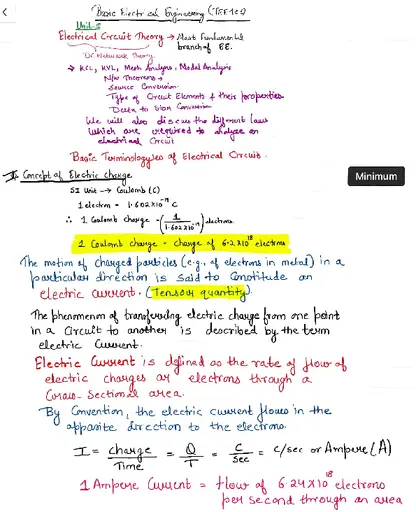 Basic Electrical Engineering (TEE 101)
Unit-I
Electrical Circuit Theory → Most Fundamental
branch of EE.
Or Network Theory
→ KCL, KVL, Mesh Analysis, Nodal Analysis
N/w Theorems →
Source Conversion
Type of Circuit Elements & their properties
Delta to Star Conversion
We will also discuss the different laws
which are required to analyse an
electrical circuit
Basic Terminologyes of Electrical Circuits.
Concept of Electric charge
SI Unit → Coulomb (C)
1 electron = 1.602×10⁻¹⁹ C
∴ 1 Coulomb charge = (1/1.602×10⁻¹⁹) electrons
1 Coulomb charge = charge of 6.24×10¹⁸ electrons
Minimum
The motion of charged particles (e.g., of electrons in metal) in a
particular direction is said to constitute an
electric current. (Tensor quantity)
The phenomenon of transferring electric charge from one point
in a circuit to another is described by the term
electric current.
Electric Current is defined as the rate of flow of
electric charges or electrons through a
Cross-Sectional area.
By Convention, the electric current flows in the
opposite direction to the electrons.
I = charge/Time = Q/T = C/sec = C/sec or Ampere (A)
1 Ampere Current = flow of 6.24×10¹⁸ electrons
per second through an area